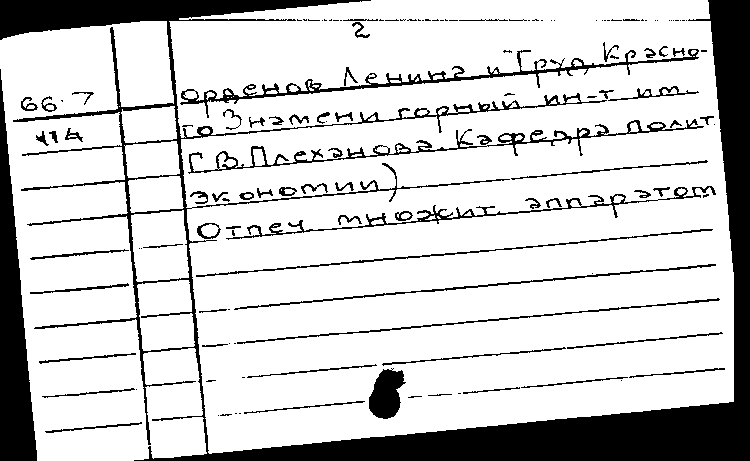 2
66.7
орденов Ленина и Труд. Красно-
го Знамени горный ин-т им.
Ч14
Г.В. Плеханова. Кафедра полит.
экономии).
Отпеч. множит. аппаратом